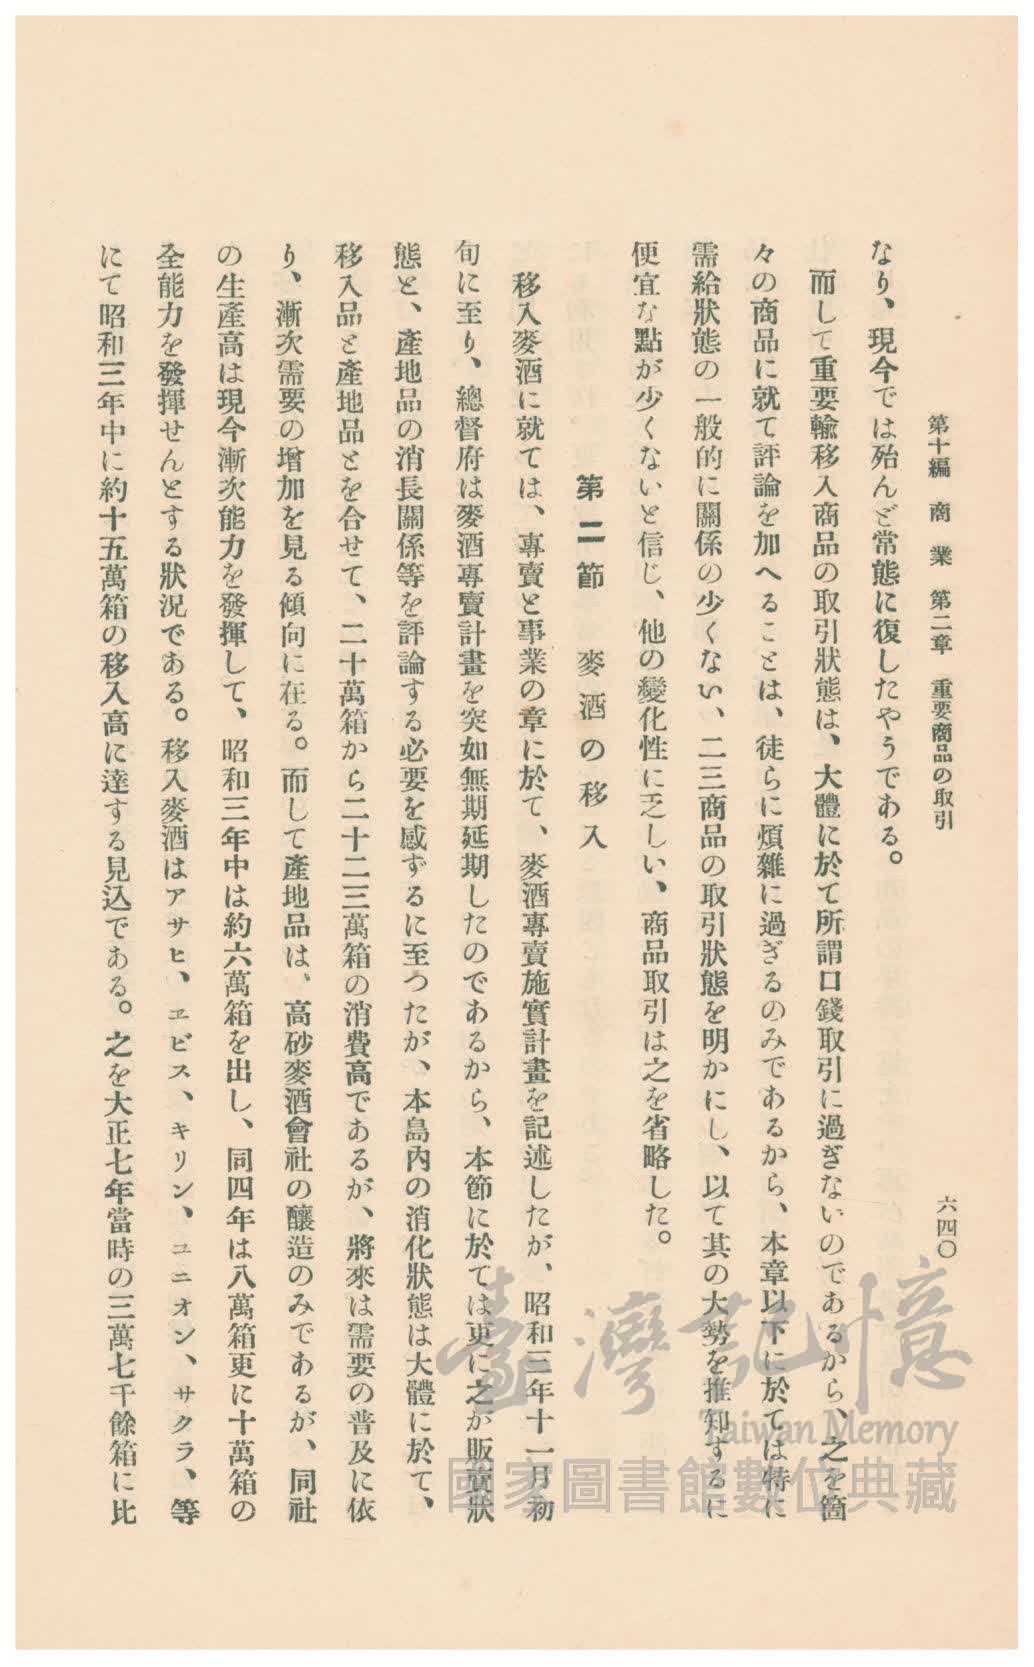 第十編　商　業　第二章　重要商品の取引
六四〇
なり、現今では殆んど常態に復したやうである。
而して重要輸移入商品の取引狀態は、大體に於て所謂口錢取引に過ぎないのであるから、之を箇
々の商品に就て評論を加へることは、徒らに煩雜に過ぎるのみであるから、本章以下に於ては特に
需給狀態の一般的に關係の少くない、二三商品の取引狀態を明かにし、以て其の大勢を推知するに
便宜な點が少くないと信じ、他の變化性に乏しい、商品取引は之を省略した。
第二節　麥酒の移入
移入麥酒に就ては、專賣と事業の章に於て、麥酒專賣施實計畫を記述したが、昭和三年十一月初
旬に至り、總督府は麥酒專賣計畫を突如無期延期したのであるから、本節に於ては更に之が販賣狀
態と、產地品の消長關係等を評論する必要を感ずるに至つたが、本島內の消化狀態は大體に於て、
移入品と產地品とを合せて、二十萬箱から二十二三萬箱の消費高であるが、將來は需要の普及に依
り、漸次需要の增加を見る傾向に在る。而して產地品は、高砂麥酒會社の釀造のみであるが、同社
の生產高は現今漸次能力を發揮して、昭和三年中は約六萬箱を出し、同四年は八萬箱更に十萬箱の
全能力を發揮せんとする狀況である。移入麥酒はアサヒ、ヱビス、キリン、ユニオン、サクラ、等
にて昭和三年中に約十五萬箱の移入高に達する見込である。之を大正七年當時の三萬七千餘箱に比
臺灣記憶
Taiwan Memory
國家圖書館數位典藏